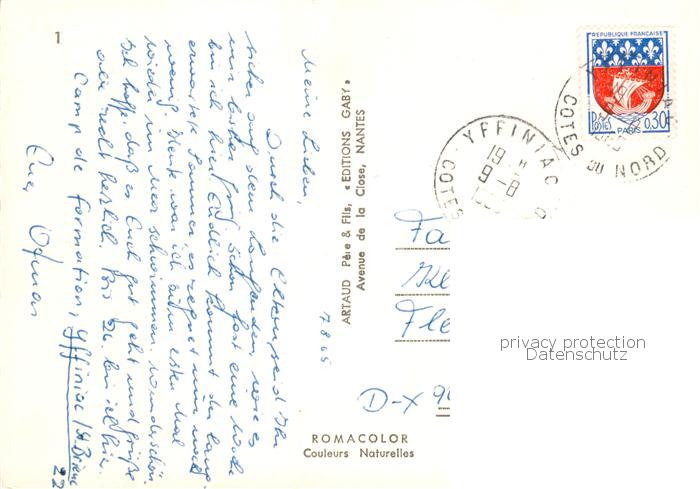 1
Meine Lieben,
Durch die Eltern seid Ihr
sicher auf dem Laufenden, was es
mit
bin ich hier. Endlich kommt der lang
erwartete Sommer, es regnet nur noch
wenig. Heute war ich zum ersten Mal
im Meer schwimmen. Wunderschön.
Ich hoffe, daß es Euch gut geht und grüße
alle recht herzlich. Bis 26. bin ich hier.
Camp de formation, Yffiniac / St Brieuc
22
Euer
7.8.65
ARTAUD Père & Fils, « EDITIONS GABY »
Avenue de la Close, NANTES
ROMACOLOR
Couleurs Naturelles
REPUBLIQUE FRANCAISE
POSTES
0,30
PARIS
YFFINIAC
19 H
9 - 8
COTES
COTES DU NORD
Fa
Fle
D-X
privacy protection
Datenschutz